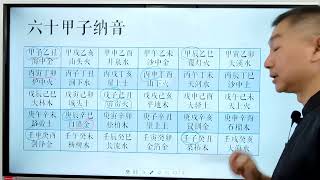 六十甲子纳音
甲子乙丑 甲戌乙亥 甲申乙酉 甲午乙未 甲辰乙巳 甲寅乙卯
海中金 山头火 井泉水 沙中金 覆灯火 大溪水
丙寅丁卯 丙子丁丑 丙戌丁亥 丙申丁酉
炉中火 涧下水 屋上土 山下火
戊辰己巳 戊寅己卯 戊子己丑 戊戌己亥 戊申己酉
大林木 城头土 霹雳火 平地木 大驿土
庚午辛未 庚辰辛巳 庚寅辛卯 庚子辛丑 庚戌辛亥 庚申辛酉
路旁土 白蜡金 松柏木 壁上土 钗钏金 石榴木
壬申癸酉 壬午癸未 壬辰癸巳 壬寅癸卯 壬子癸丑 壬戌癸亥
剑锋金 杨柳木 长流水 金箔金 桑柘木 大海水